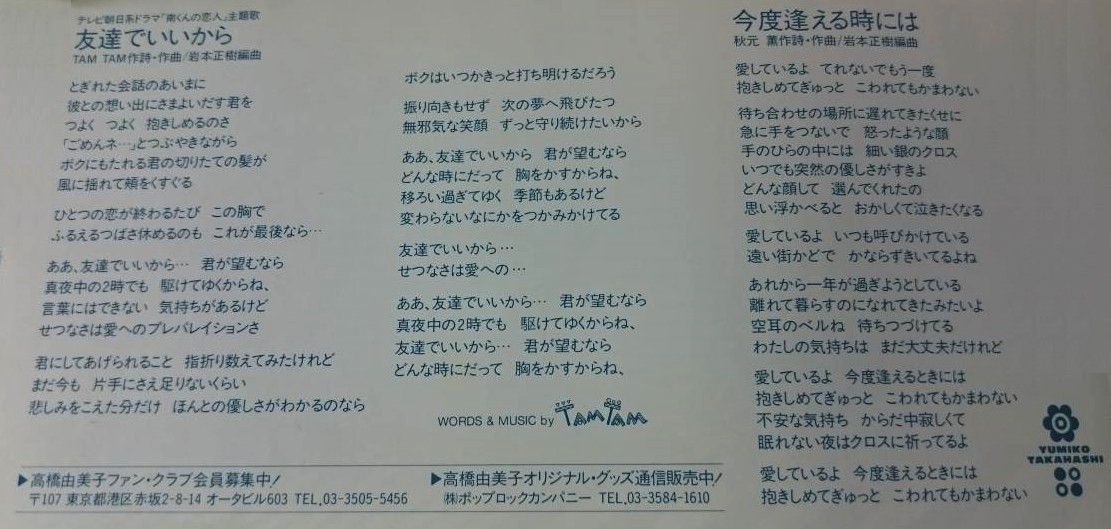 テレビ朝日系ドラマ「南くんの恋人」主題歌
友達でいいから
TAM TAM作詩・作曲/岩本正樹編曲
とぎれた会話のあいまに
彼との想い出にさまよいだす君を
つよく つよく 抱きしめるのさ
「ごめんネ…」とつぶやきながら
ボクにもたれる君の切りたての髪が
風に揺れて頬をくすぐる
ひとつの恋が終わるたび この胸で
ふるえるつばさ休めるのも これが最後なら…
ああ、友達でいいから… 君が望むなら
真夜中の2時でも 駆けてゆくからね、
言葉にはできない 気持ちがあるけど
せつなさは愛へのプレパレイションさ
君にしてあげられること 指折り数えてみたけれど
まだ今も 片手にさえ足りないくらい
悲しみをこえた分だけ ほんとの優しさがわかるのなら
ボクはいつかきっと打ち明けるだろう
振り向きもせず 次の夢へ飛びたつ
無邪気な笑顔 ずっと守り続けたいから
ああ、友達でいいから 君が望むなら
どんな時にだって 胸をかすからね、
移ろい過ぎてゆく 季節もあるけど
変わらないなにかをつかみかけてる
友達でいいから…
せつなさは愛への…
ああ、友達でいいから… 君が望むなら
真夜中の2時でも 駆けてゆくからね、
友達でいいから… 君が望むなら
どんな時にだって 胸をかすからね、
WORDS & MUSIC by TAM TAM
今度逢える時には
秋元 薫作詩・作曲/岩本正樹編曲
愛しているよ てれないでもう一度
抱きしめてぎゅっと こわれてもかまわない
待ち合わせの場所に遅れてきたくせに
急に手をつないで 怒ったような顔
手のひらの中には 細い銀のクロス
いつでも突然の優しさがすきよ
どんな顔して 選んでくれたの
思い浮かべると おかしくて泣きたくなる
愛しているよ いつも呼びかけている
遠い街かどで かならずきいてるよね
あれから一年が過ぎようとしている
離れて暮らすのになれてきたみたいよ
空耳のベルね 待ちつづけてる
わたしの気持ちは まだ大丈夫だけれど
愛しているよ 今度逢えるときには
抱きしめてぎゅっと こわれてもかまわない
不安な気持ち からだ中寂しくて
眠れない夜はクロスに祈ってるよ
愛しているよ 今度逢えるときには
抱きしめてぎゅっと こわれてもかまわない
YUMIKO
TAKAHASHI
▶高橋由美子ファン・クラブ会員募集中!
〒107 東京都港区赤坂2-8-14 オータビル603 TEL.03-3505-5456
▶高橋由美子オリジナル・グッズ通信販売中!
㈱ポップロックカンパニー TEL.03-3584-1610